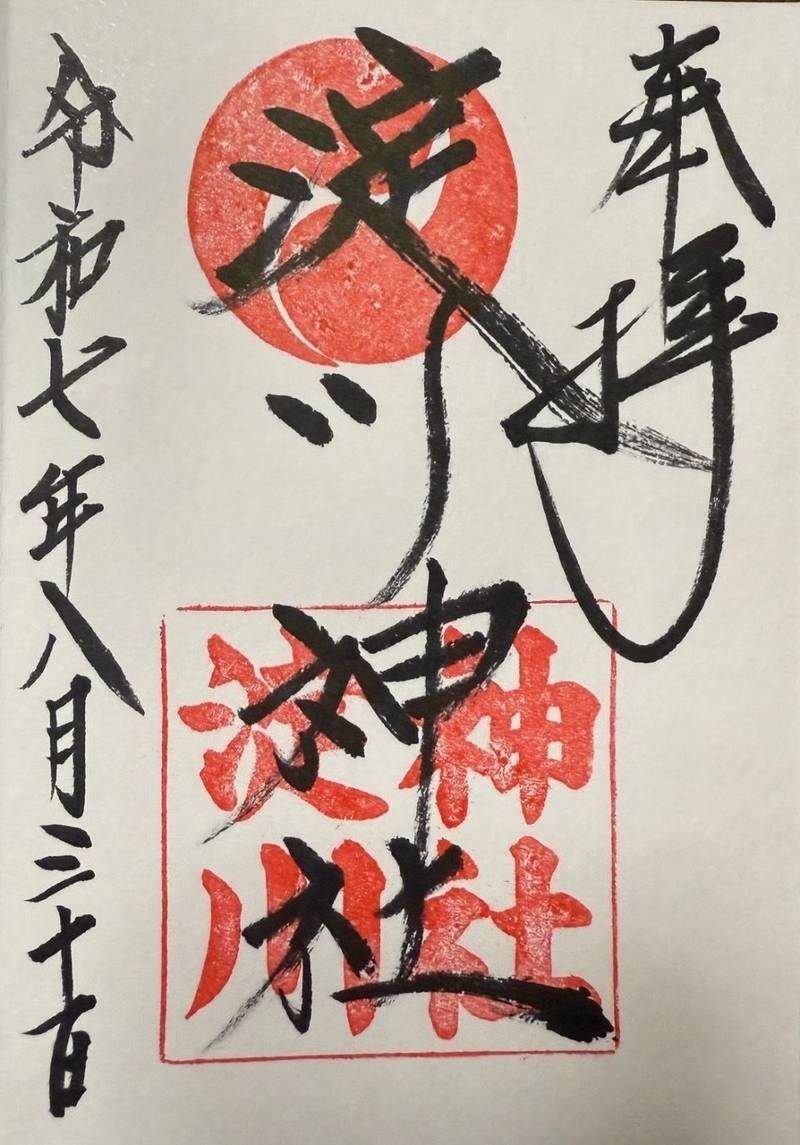 奉拝
淀川神社
令和七年八月三十一日
淀川
神社